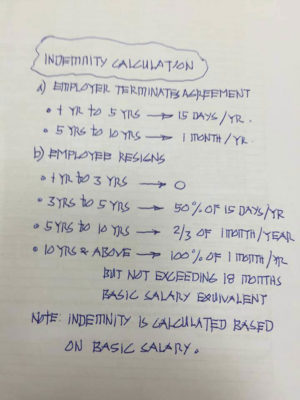 INDEMNITY CALCULATION
a) EMPLOYER TERMINATES AGREEMENT
• 1 YR to 5 YRS → 15 DAYS/YR.
• 5 YRS to 10 YRS → 1 MONTH/YR.
b) EMPLOYEE RESIGNS
• 1 YR to 3 YRS → 0
• 3 YRS to 5 YRS → 50% OF 15 DAYS/YR
• 5 YRS to 10 YRS → 2/3 OF 1 MONTH/YEAR
• 10 YRS & ABOVE → 100% OF 1 MONTH/YR
BUT NOT EXCEEDING 18 MONTHS
BASIC SALARY EQUIVALENT
NOTE: INDEMNITY IS CALCULATED BASED
ON BASIC SALARY.